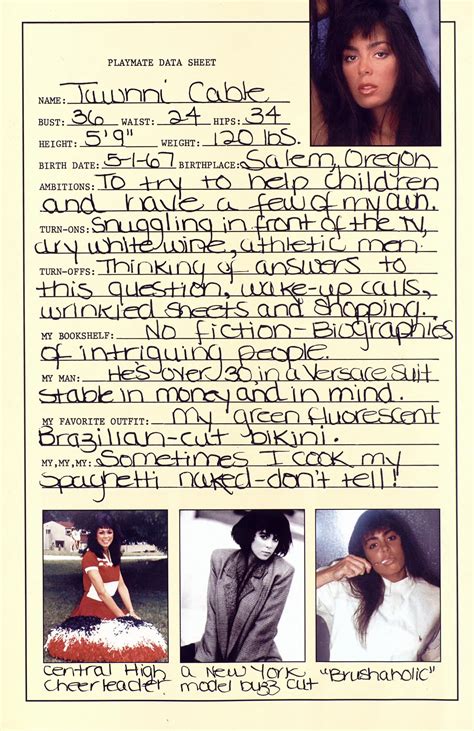 PLAYMATE DATA SHEET
NAME: Tawnni Cable
BUST: 36 WAIST: 24 HIPS: 34
HEIGHT: 5'9" WEIGHT: 120 lbs.
BIRTH DATE: 5-1-67 BIRTHPLACE: Salem, Oregon
AMBITIONS: To try to help children
and have a few of my own.
TURN-ONS: Snuggling in front of the TV,
dry white wine, athletic men.
TURN-OFFS: Thinking of answers to
this question, wake-up calls,
wrinkled sheets and shopping.
MY BOOKSHELF: No fiction-Biographies
of intriguing people.
MY MAN: He's over 30, in a Versace suit
stable in money and in mind.
MY FAVORITE OUTFIT: My green fluorescent
Brazilian-cut bikini.
MY,MY,MY: Sometimes I cook my
spaghetti naked-don't tell!
Central High
Cheerleader
a New York
model buzz cut
"Brushaholic"